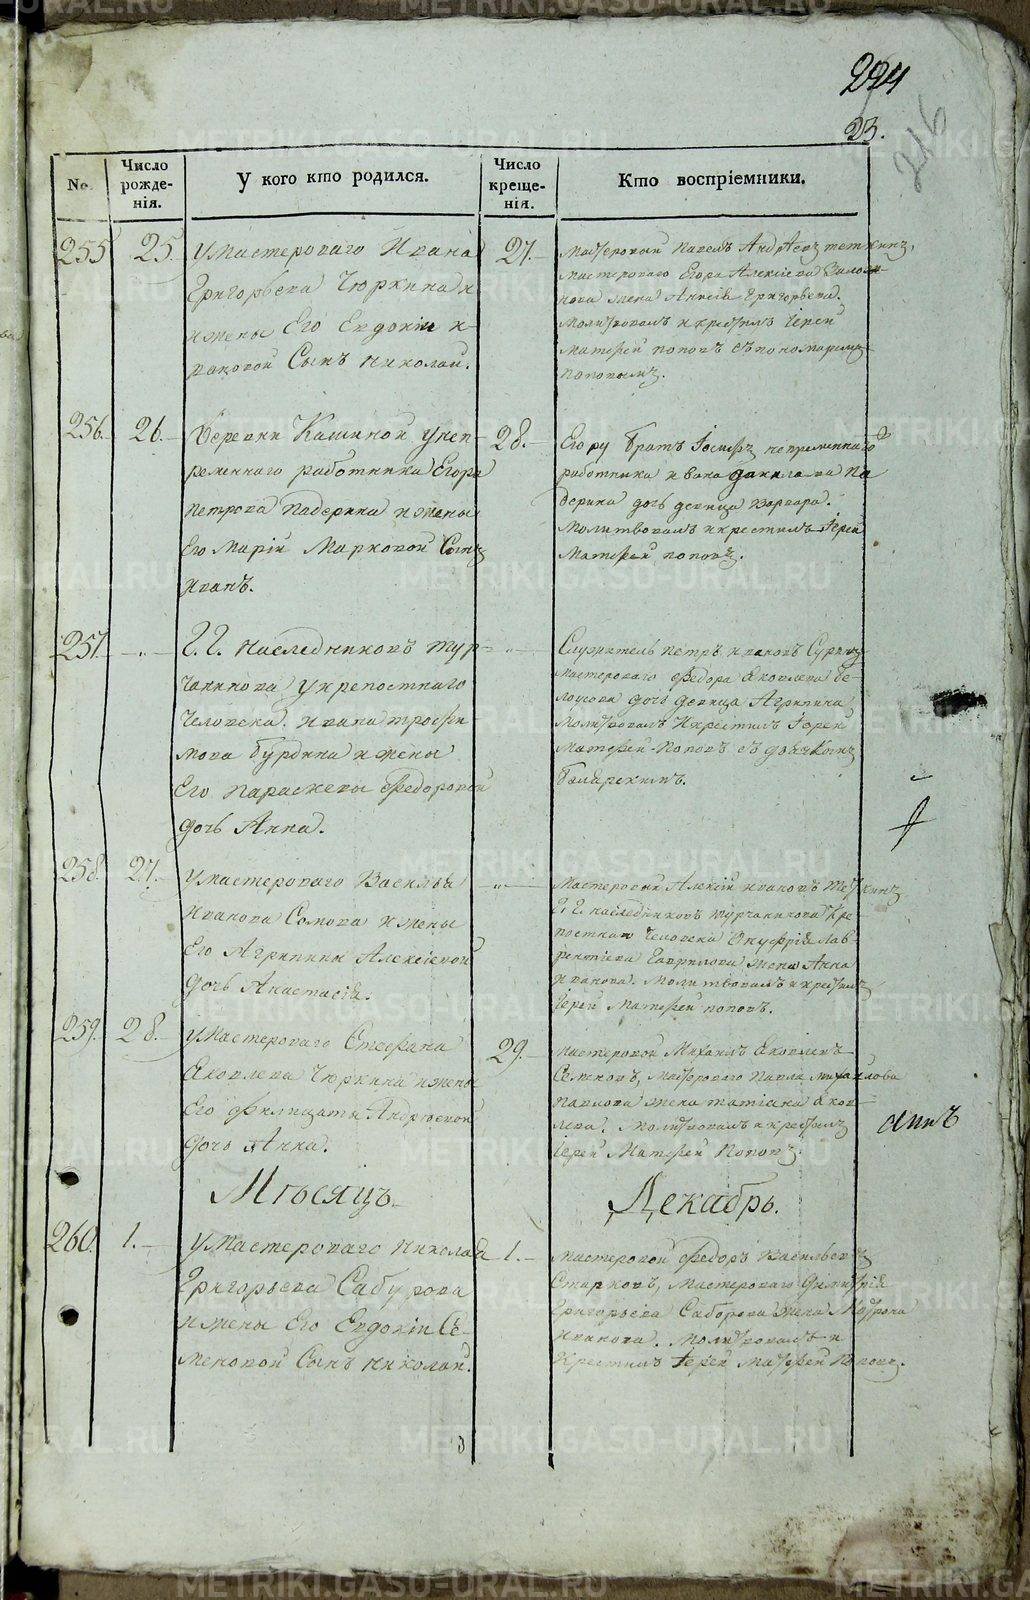 224
23.
216
No.
Число рожде-нія.
У кого кто родился.
Число креще-нія.
Кто воспріемники.
255
25.
У мастероваго Ивана
Григорьева Чюркина и
жены Его Евдокіи И-
вановой Сынъ Николай.
27.
Мастеровый Павелъ Андреевъ Теткинъ,
мастероваго Егора Алексіева
жена Григорьева.
Молитвовалъ и крестилъ Іерей
Матфей Поповъ съ пономаремъ
Поповымъ.
256.
26.
Деревни Кашиной у неп-
ременнаго работника Егора
Петрова Падерина и жены
Его Маріи Марковой Сынъ
Иванъ.
28.
Егору братъ Іосифъ непременнаго
работника Ивана Данилова Па
дерина дочь девица Варвара.
Молитвовалъ и крестилъ Іерей
Матфей Поповъ.
257.
-"-
Г. Г. Наследниковъ Тур-
чанинова у крепостнаго
человека Ивана Трофи
мова Бурдина и жены
Его Параскевы Федоровой
дочь Анна.
-"-
Служитель Петръ Ивановъ
мастероваго Федора Яковлева Бе-
лоусова дочь девица Агрипина,
Молитвовалъ и крестилъ Іерей
Матфей Поповъ съ дьячкомъ
258.
27.
У мастероваго Василья
Иванова Сомова и жены
Его Агрипины Алексіевой
дочь Анастасія.
-"-
Мастеровый Алексій Ивановъ Теткинъ
Г. Г. наследниковъ Турчанинова Кре
постнаго человека Онуфрія Лав-
рентіева Гаврилова жена Анна
Иванова. Молитвовалъ и крестилъ
Іерей Матфей Поповъ.
259.
28.
У мастероваго Стефана
Яковлева Чюркина и жены
Его Филицаты Андреевой
дочь Анна.
29.
Мастеровой Михаилъ Яковлевъ
мастероваго Павла Михайлова
Павлова жена Татіана Яков
лева. Молитвовалъ и крестилъ
Іерей Матфей Поповъ.
Мѣсяцъ
Декабрь.
260.
1.
У Мастероваго Николая
Григорьева Сабурова
и жены Его Евдокіи Се-
меновой Сынъ Николай.
1.
Мастеровой Федоръ Васильевъ
Старковъ, Мастероваго Димитрія
Григорьева Сабурова жена Матрона
Иванова. Молитвовалъ и
Крестилъ Іерей Матфей Поповъ.
METRIKI.GASO-URAL.RU